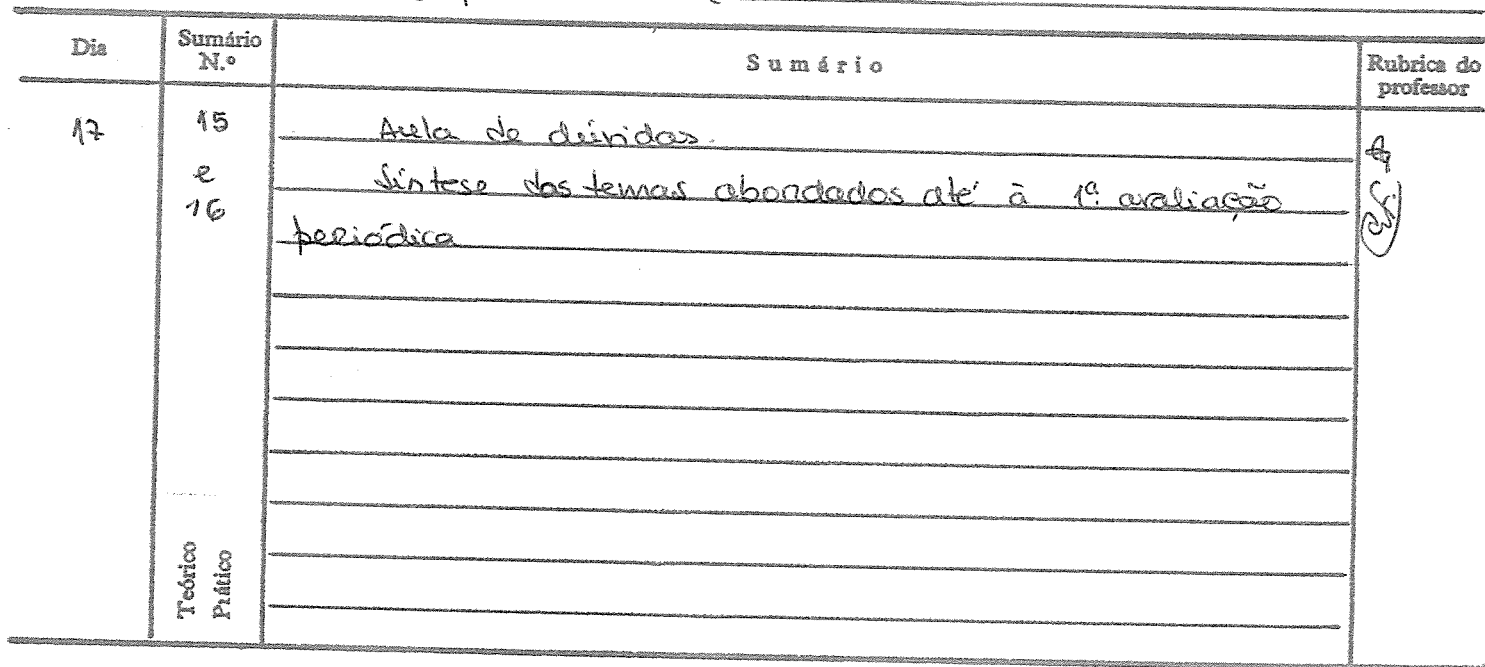 Dia
Sumário
N.º
Sumário
Rubrica do
professor
17
15
e
16
Aula de dúvidas.
Síntese dos temas abordados até à 1ª avaliação
periódica
Teórico
Prático